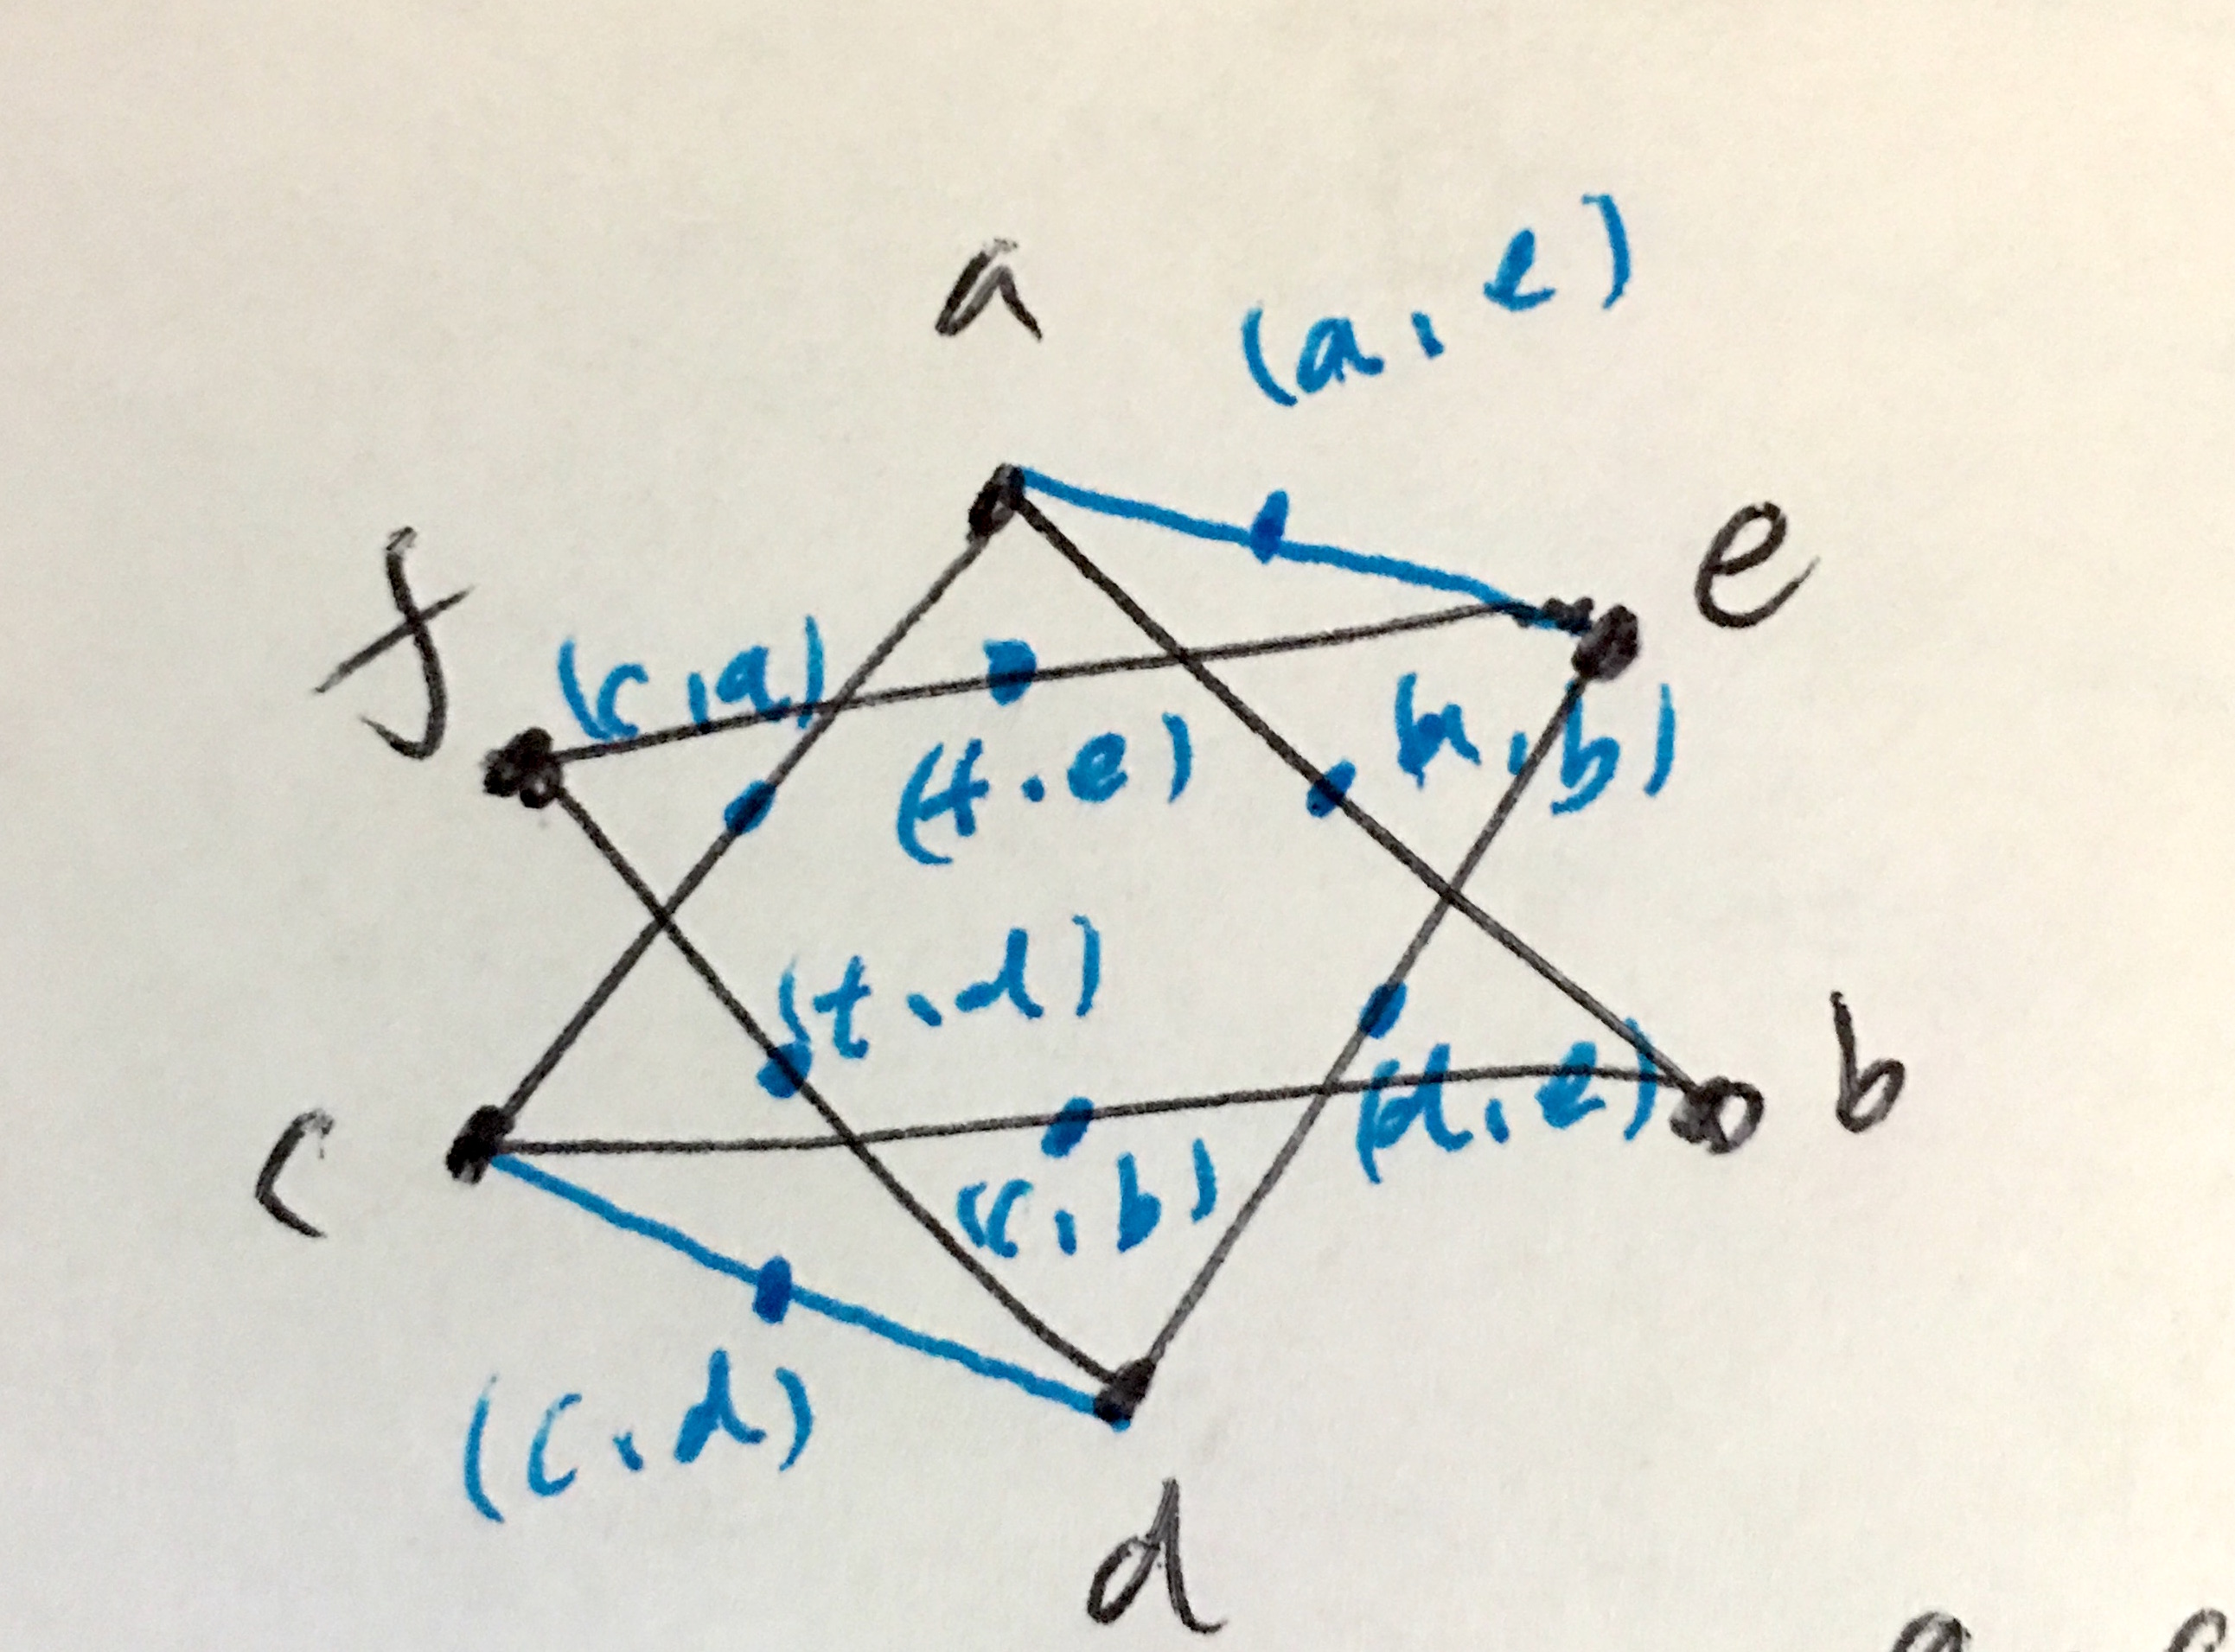 a
(a,e)
e
f
(c,a)
(f.e)
(a,b)
(f.d)
b
(d,e)
c
(c,b)
(c.d)
d